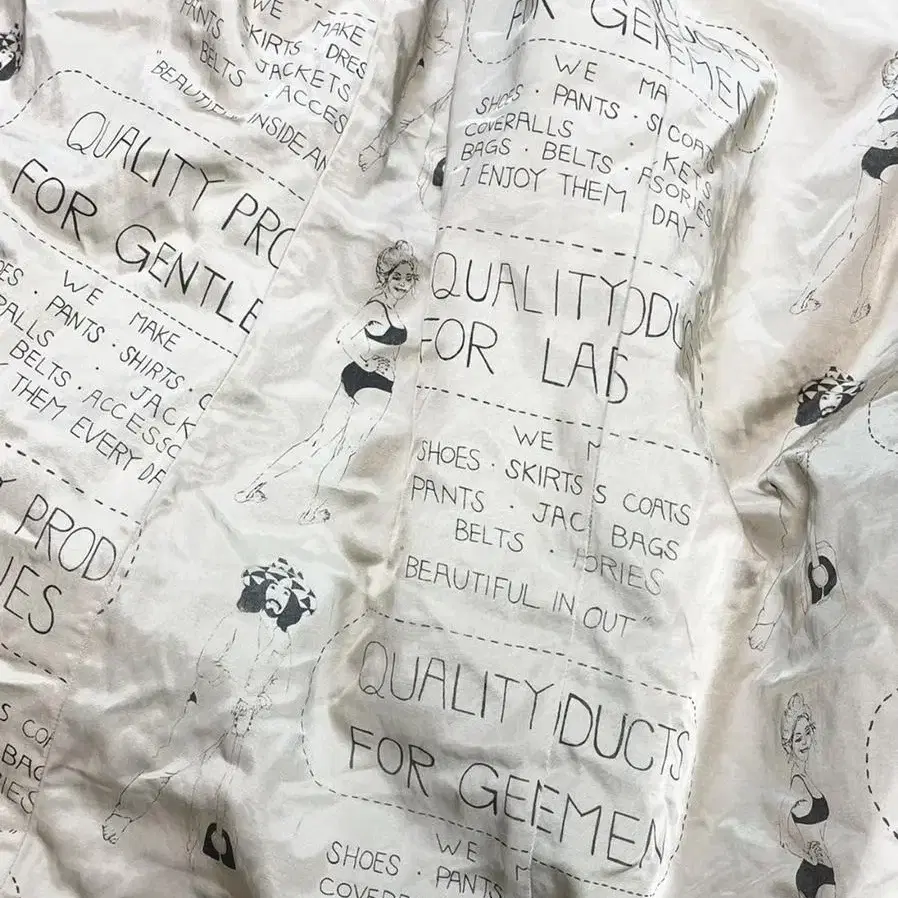 WE
MAKE
PANTS · SKIRTS · DRES
BELTS · JACKETS
ACCES
"BEAUTIF INSIDE AN
QUALITY PRO
FOR GENTLE
WE
MAKE
OES · PANTS · SHIRTS · C
RALLS · JACK
BELTS · ACCESSO
THEM EVERY DA
Y PROD
IES
S CO
BAG
RIES
UCTS
FOR GE EMEN
WE MA
SHOES · PANTS · S COATS
COVERALLS · KEYS
BAGS · BELTS · A SORIES
I ENJOY THEM DAY
QUALITY ODUC
FOR LA
WE M
SHOES · SKIRTS S COATS
PANTS · JAC BAGS
BELTS · ORIES
BEAUTIFUL IN OUT"
QUALITY DUCTS
FOR GE EMEN
WE M
SHOES · PANTS
COVER